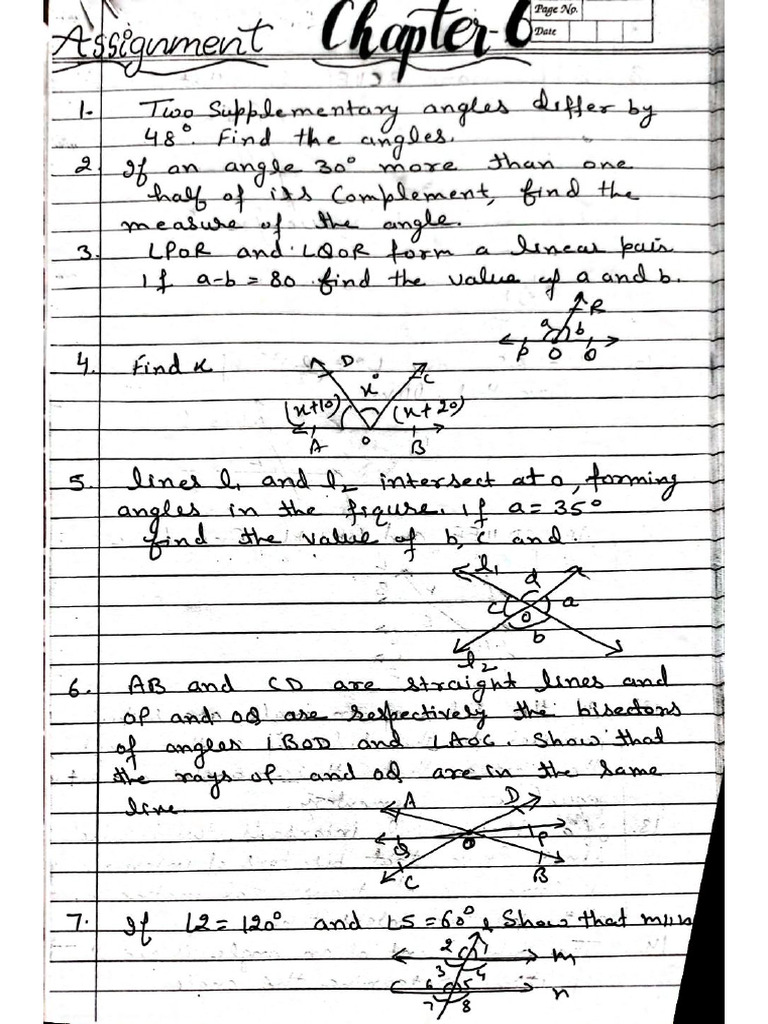 Assignment Chapter-6
Page No.
Date
1. Two Supplementary angles differ by
48°. Find the angles.
2. If an angle 30° more than one
half of its Complement, find the
measure of the angle.
3. ∠POR and ∠QOR form a linear pair
if a-b = 80 find the value of a and b.
R
a b
P O Q
4. Find x
D
x° C
(x+10) (x+20)
A O B
5. lines l1 and l2 intersect at o, forming
angles in the figure. if a = 35°
find the value of b, c and.
l1 d
c O a
b
l2
6. AB and CD are straight lines and
OP and OQ are respectively the bisectors
of angles ∠BOD and ∠AOC. Show that
the rays OP and OQ are in the same
line.
A D
Q O P
C B
7. If ∠2 = 120° and ∠5 = 60°, Show that m||n
2 1
3 4 m
6 5 n
7 8